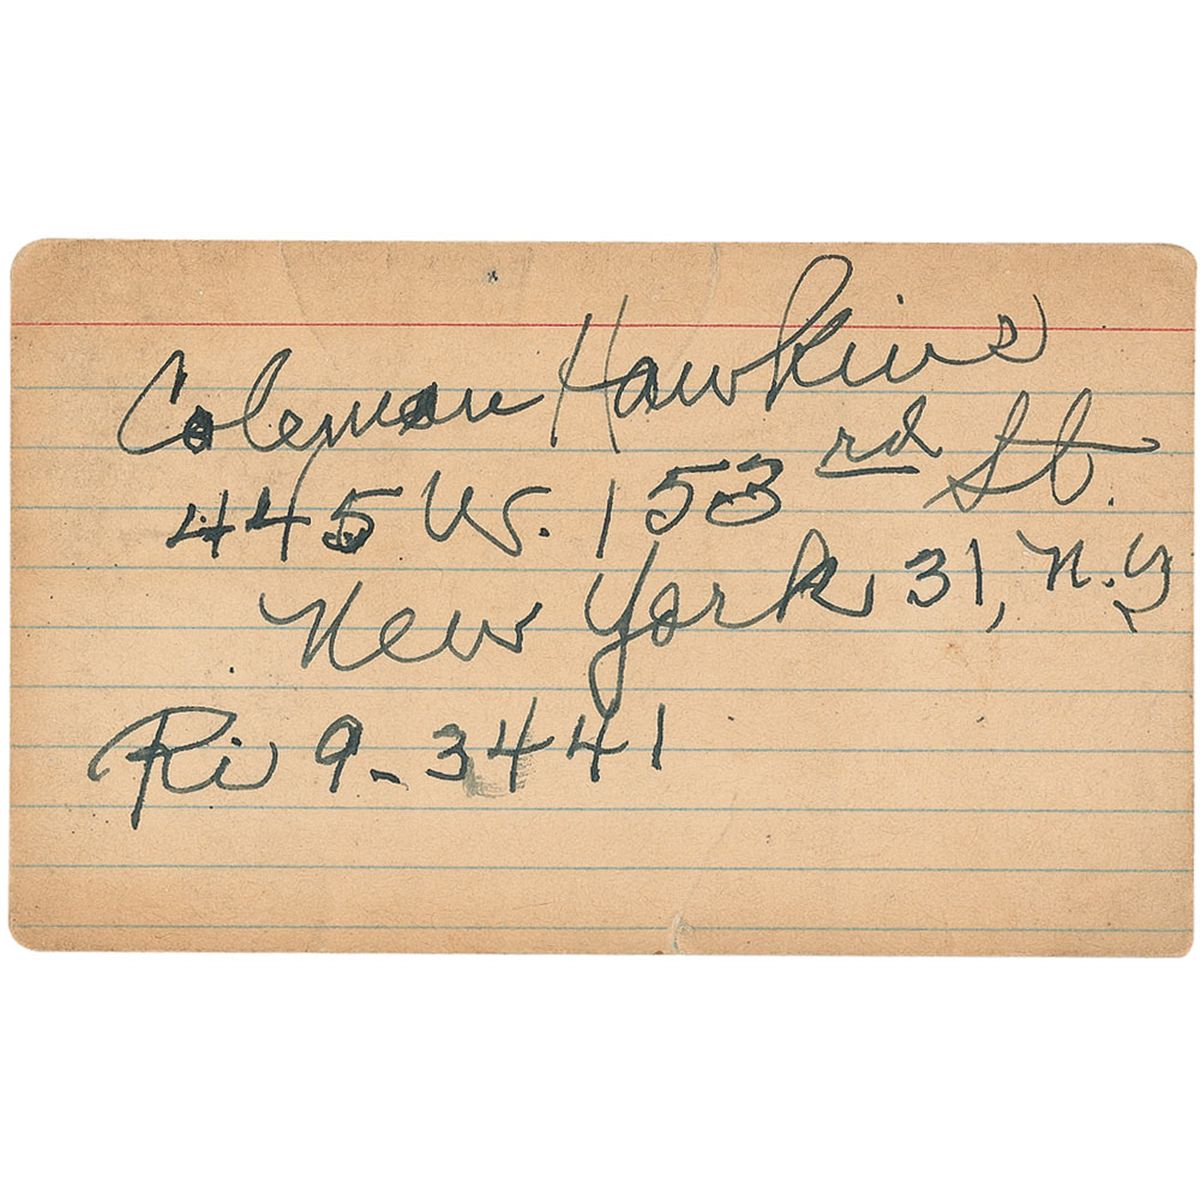 Coleman Hawkins
445 W. 153rd St.
New York 31, N.Y
Ri 9-3441